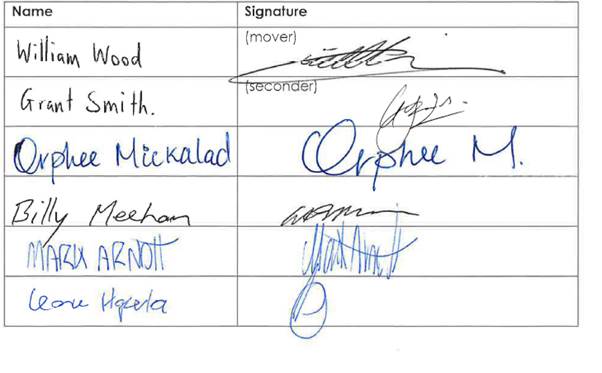 Name Signature
William Wood (mover)
Grant Smith. (seconder)
Orphee Mickalad Orphee M.
Billy Meehan
MARK ARNOTT Mark Arnott